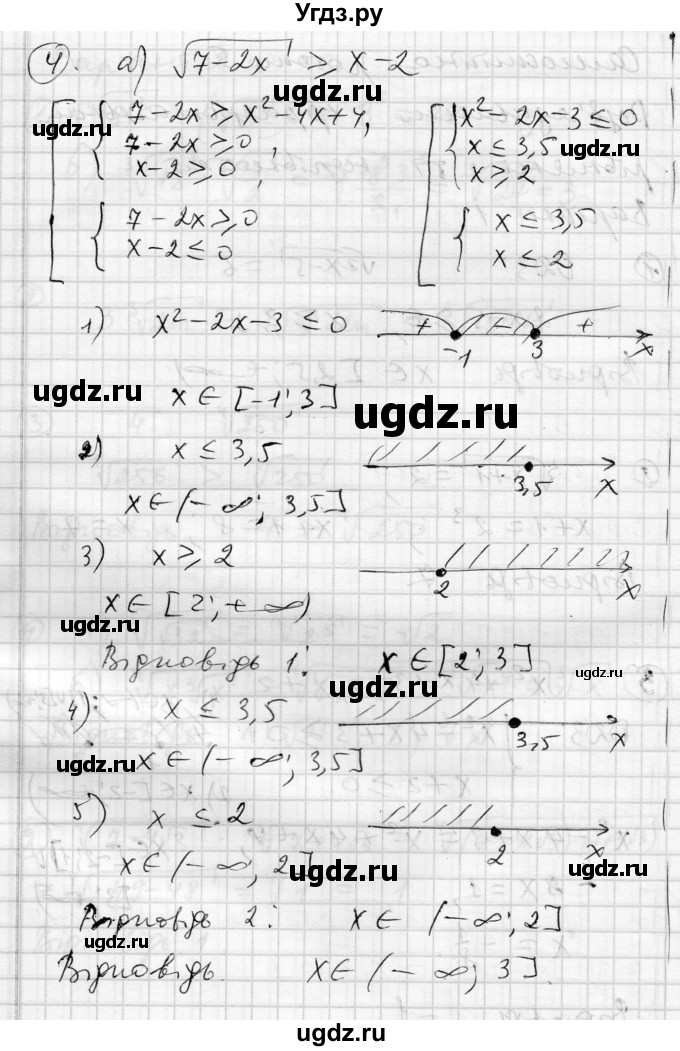 Угдз.ру
4. а) √7-2x ≥ x-2
ugdz.ru
7-2x ≥ x²-4x+4,
7-2x ≥ 0,
x-2 ≥ 0,
7-2x ≥ 0
x-2 ≤ 0
x²-2x-3 ≤ 0
x ≤ 3,5
ugdz.ru
x ≥ 2
x ≤ 3,5
x ≤ 2
1) x²-2x-3 ≤ 0
+ - +
-1 3 x
ugdz.ru
x ∈ [-1; 3]
ugdz.ru
2) x ≤ 3,5
3,5 x
x ∈ (-∞; 3,5]
3) x ≥ 2
2 x
x ∈ [2; +∞)
ugdz.ru
Відповідь 1: x ∈ [2; 3]
ugdz.ru
ugdz.ru
4): x ≤ 3,5
3,5 x
ugdz.ru
x ∈ (-∞; 3,5]
5) x ≤ 2
2 x
x ∈ (-∞; 2]
ugdz.ru
ugdz.ru
Відповідь 2: x ∈ (-∞; 2]
ugdz.ru
Відповідь. x ∈ (-∞; 3].
ugdz.ru
ugdz.ru